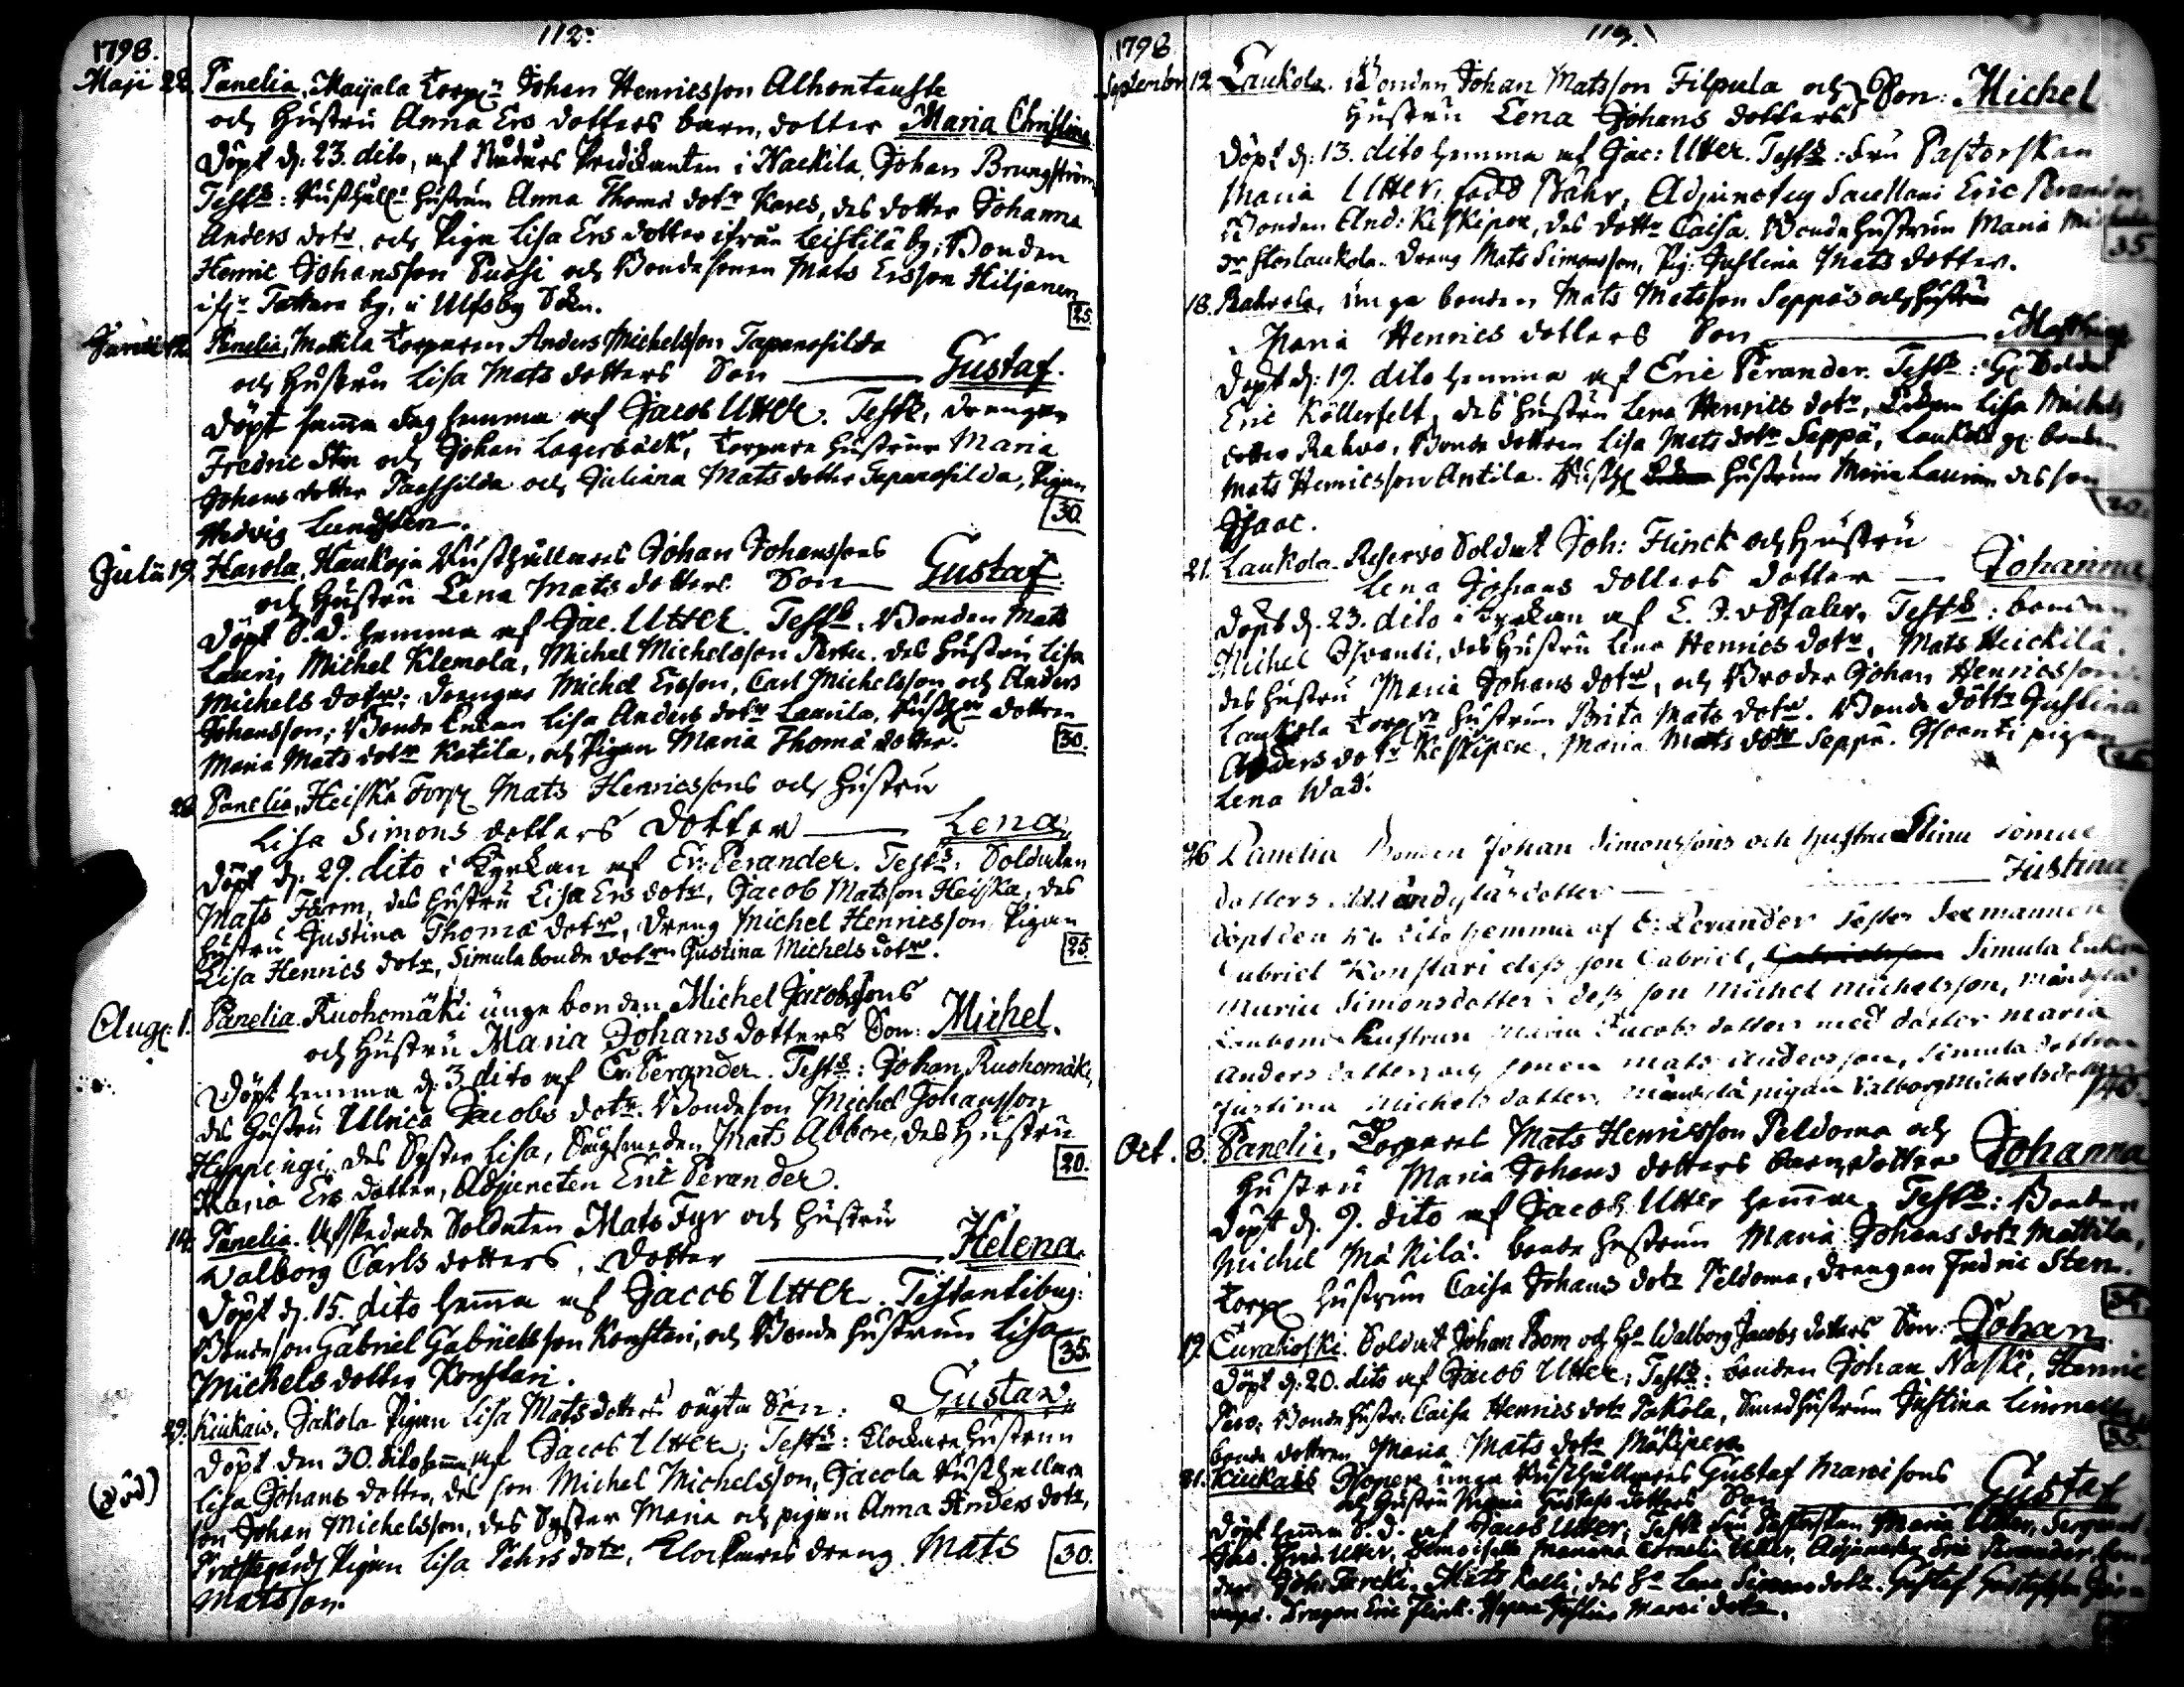 112.
1798.
Maji 22. Panelia, Maijala Torp: Johan Henricsson Alhontausta
och Hustru Anna Ers dotters barn, dotter Maria Christina
Döpt d: 23. dito, af Predikanten i Nackila, Johan Brungström
Test: Hustrun Anna Thoma dotr Kares, des dotter Johanna
Anders dotr, och Pigan Lisa Ers dotter ifrån Leistilä by; Bonden
Henric Johansson Puosi och Bondesonen Mats Ersson Hiljanen
Tattara by, i Ulfsby Sokn.
25
Junii 12. Panelia, Mattila Torparen Anders Michelsson Tapanosilda
och Hustru Lisa Mats dotters Son Gustaf.
Döpt sama dag hemma af Jacob Utter. Test, drengar
Fredric Sten och Johan Lagerbäck, Torpare Hustrun Maria
Johans dotter Paassilda och Juliana Mats dotter Tapanosilda, Pigan
Hedvig Lundsten.
30.
Julii 19. Harola, Haukoja Rusthållares Johan Johanssons
och Hustru Lena Mats dotters Son Gustaf.
Döpt S.D. hemma af Jac. Utter. Test. Bonden Mats
Lauri, Michel Klemola, Michel Michelsson Perttu. des Hustru Lisa
Michels dotr; drengar Michel Ersson, Carl Michelsson och Anders
Johansson; Bonde Enkan Lisa Anders dotr Laurila, dottren
Maria Mats dotr Katila, och Pigan Maria Thoma dotter.
30.
28. Panelia, Heiska Torp: Mats Henricssons och Hustru
Lisa Simons dotters dotter Lena
Döpt d: 29. dito i Kyrkan af Er: Perander. Test: Soldaten
Mats Form, des Hustru Lisa Ers dotr, Jacob Matsson Heiska, des
Hustru Justina Thoma dotr, Dreng Michel Henricsson, Pigan
Lisa Henrics dotr, Simula bonde dotren Justina Michels dotr.
25
Aug: 1. Panelia. Ruohomäki unge bonden Michel Jacobssons
och Hustru Maria Johans dotters Son: Michel.
Döpt hemma d: 3 dito af Er: Perander. Test: Johan Ruohomäki,
des Hustru Ulrica Jacobs dotr. Bondeson Michel Johansson
Hyppingi, des Syster Lisa, Mats Abbore, des Hustru
Maria Ers dotter, Adjuncten Eric Perander.
20.
14. Panelia. Afskedade Soldaten Mats Fyr och Hustru
Walborg Carls dotters, dotter Helena.
Döpt d. 15. dito hema af Jacob Utter. Testantibus:
Bondeson Gabriel Gabrielsson Konstari, och Bonde Hustrun Lisa
Michels dotter Konstari.
35.
29. Kiukais, Jakola Pigan Lisa Mats dotters oägta Son: Gustav
Döpt den 30. dito hemma af Jacob Utter; Test: Klockare Hustrun
Lisa Johans dotter, des son Michel Michelsson, Jacola Rusthållare
son Johan Michelsson, des Syster Maria och pigan Anna Anders dotr,
Prästgårds Pigan Lisa Pehrs dotr, Klockares dreng Mats
Matsson.
30.
113.
1798
September 12. Laukola. Bonden Johan Matsson Filpula och Son: Michel
Hustru Lena Johans dotters
Döpt d: 13. dito hemma af Jac: Utter. Test: Fru Pastorskan
Maria Utter, född Bahr, Adjunctus Sacellani Eric Perander,
Bonden And: Keskipere, des dottr Caisa. Bonde Hustrun Maria
Storlaukola. Dreng Mats Simonsson, Pig: Justina Mats dotter.
35.
18. Rahvola, unga bonden Mats Matsson Seppäs och Hustru
Maria Henrics dotters Son Matthias
Döpt d: 19. dito hemma af Eric Perander. Test:
Eric Köllerfelt, des Hustru Lena Henrics dotr, Enkan Lisa Michels
dotter Rahvo, Bonde dottren Lisa Mats dotr Seppä, Laukola bonden
Mats Henricsson Antila. Hustrun Maria Lauri des son
Isaac.
20.
21. Laukola. Reserve Soldat Joh: Flinck och Hustru
Lena Johans dotters dotter Johanna
Döpt d. 23. dito i Kyrkan af E. J. v Pfaler. Test: bonden
Michel Isvanti, des Hustru Lena Henrics dotr, Mats Heickilä.
des Hustru Maria Johans dotr, och Broder Johan Henricsson
Laukola Torp: Hustrun Brita Mats dotr. Bonde dottr Justina
Anders dotr Keskipere, Maria Mats dotr Seppä. Isvanti pigan
Lena Wad.
26. Panelia Bonden Johan Simonssons och hustru Stina Simons
dotters Mändylä dotter Justina
döpt den dito hemma af E: Perander Testes Sexmannen
Gabriel Konstari dess son Gabriel, Simula Enkan
Maria Simonsdotter dess son Michel Michelsson, Mändylä
hustrun Maria Jacobs dotter med dotter Maria
Anders dotter och sonen Mats Andersson, Simula dottren
Justina Michels dotter, Mändylä pigan Valborg Michelsdotter
40.
Oct. 8. Panelia, Torparen Mats Henricsson Peldoma och
Hustru Maria Johans dotters barn, dotter Johanna
Döpt d. 9. dito af Jacob Utter hemma. Test: Bonden
Michel Mä Nilä. bonde hustrun Maria Johans dotr Mattila,
Torp: Hustrun Caisa Johans dotr Peldoma, drengen Fredric Sten.
19. Eurakoski. Soldat Johan Bom och H: Walborg Jacobs dotters Son: Johan
Döpt d: 20. dito af Jacob Utter; Test: bonden Johan Naski, Henric
Pero; Bonde Hustr: Caisa Henrics dotr Pakola, Smed Hustrun Justina
bonde dottren Maria Mats dotr Mäkipere
35
31. Kiukais Isopere unge Rusthållares Gustaf Marcisons
och Hustru Maria Gustafs dotters Son Gustaf
Döpt hemma S.D. af Jacob Utter; Test: Fru Pastorskan Maria Utter, Sergeant
Utter, Demoiselle Mariana Cornelia Utter, Adjunctus Eric Perander,
Joh: Torcki. Mats Kalli, des H: Lena Simons dotr. Gustaf Gustafsson
Dragon Eric Flinck. Justina Marci dotr.